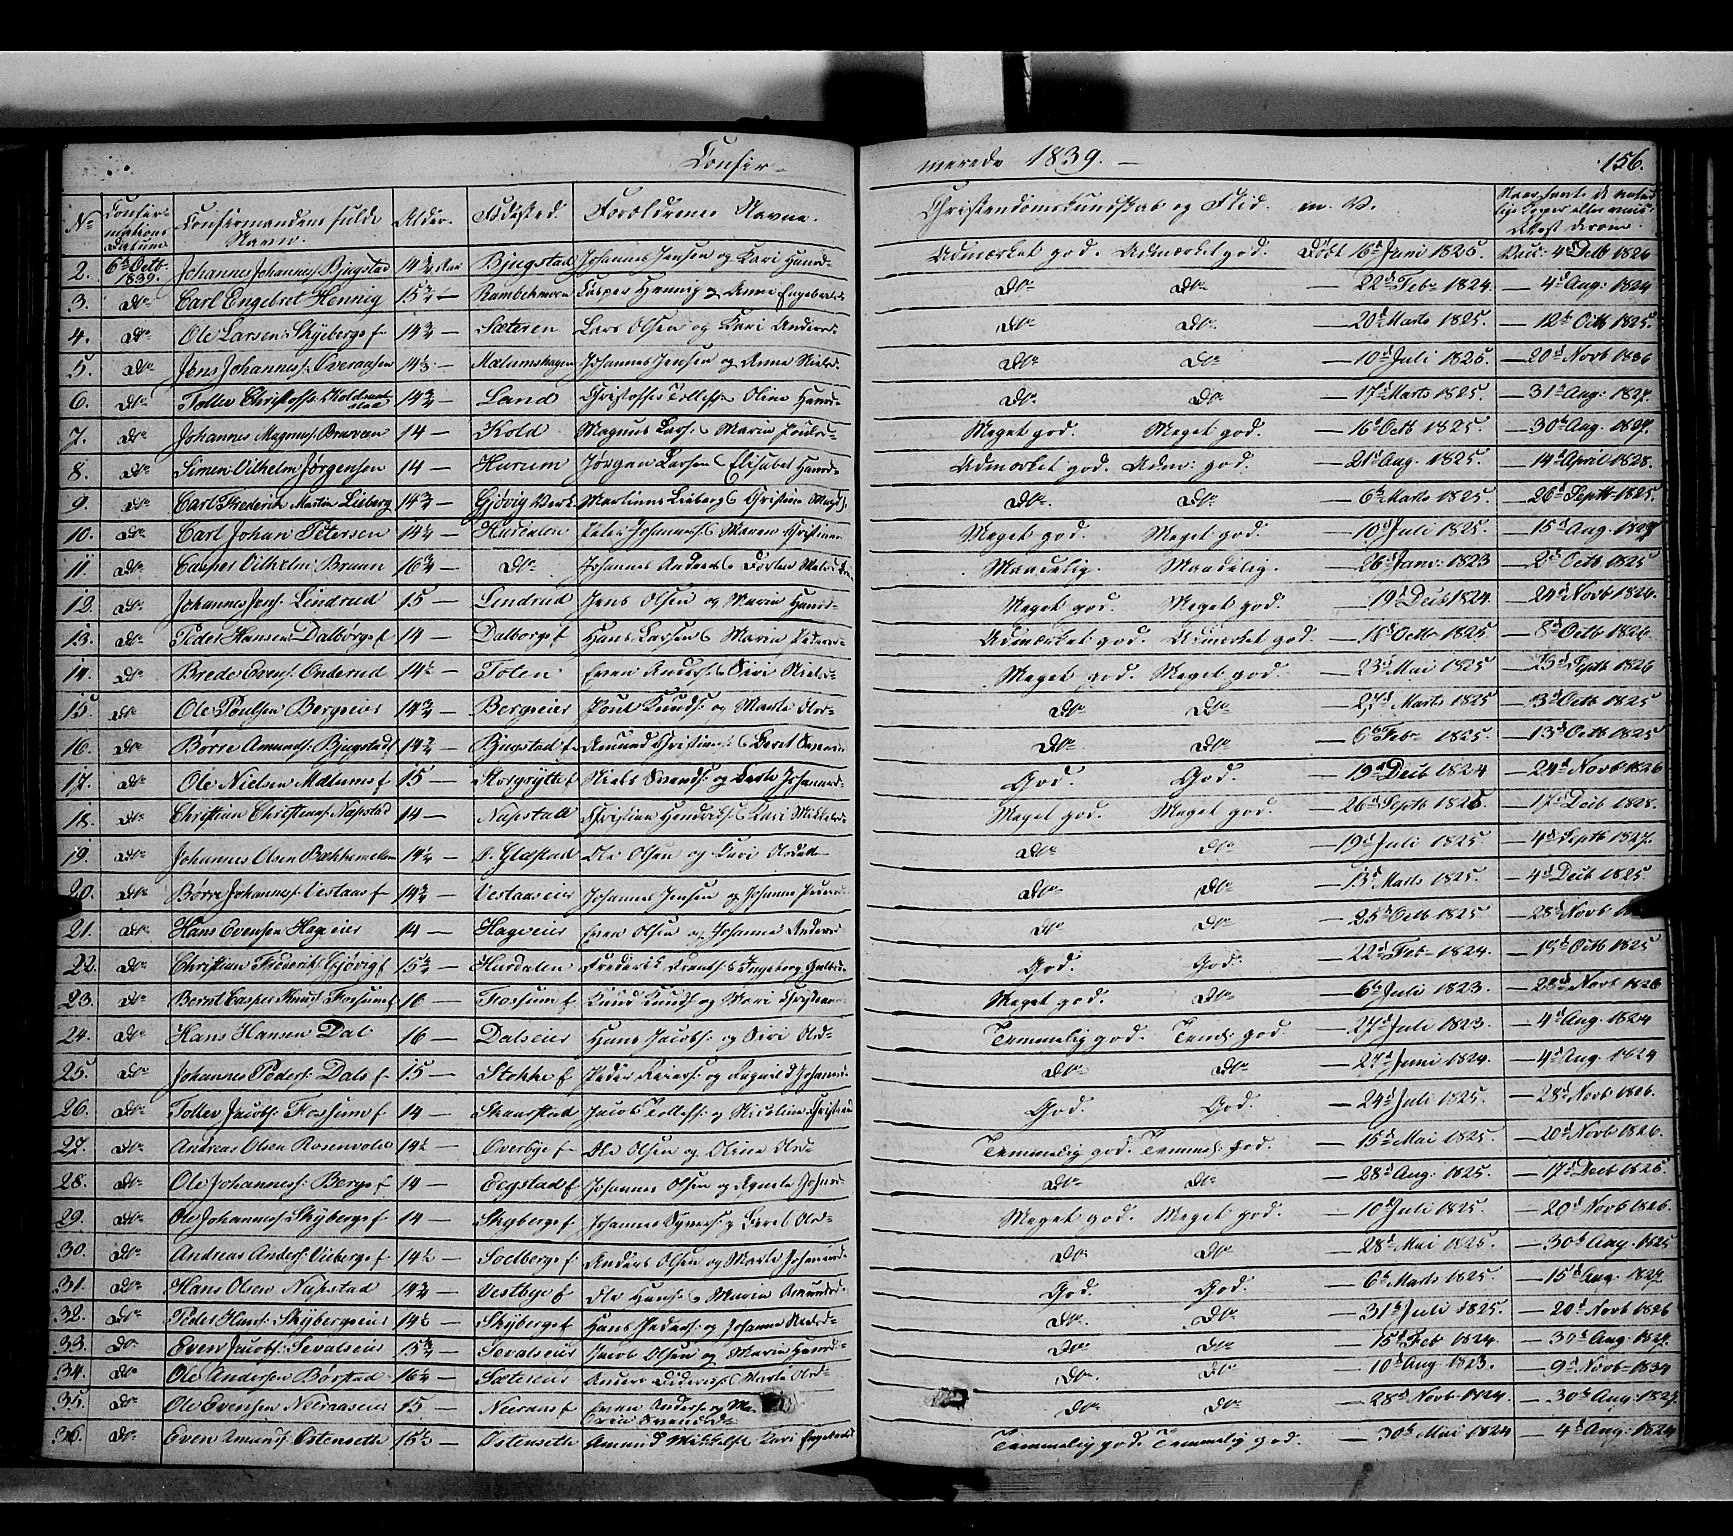 Confir- merede 1839. — 156.
No Confirmations Datum Confirmandens fulde Navn. Alder. Fødested. Forældrenes Navne. Christendomskundskab og Flid. m. V. Naar
2. 6te Octb. 1839. Johannes Johannes: Bjugstad 14 3/4 Bjugstad Johannes Jensen og Kari Hansd- Udmærket god. Udmærket god. Født 16d Juni 1825 Vacc: 4d Octb 1826
3. Do Carl Engebret Hennig 15 3/4 Rambekmoen Casper Hennig og Anne Engebretsd Do Do — 22d Feb 1824. — 4d Aug: 1824
4. Do Ole Larsen Skybergs f 14 3/4 — Sæteren Lars Olsen og Kari Do Do — 20d Marts 1825. — 12d Octb 1825.
5. Do Jens Johannes: Overaasen 14 1/2 — Mælumshagen Johannes Jensen og Anne Nielsd- Do Do — 10d Juli 1825 — 20d Novb 1836
6. Do Toller Christoffs: 14 3/4 — Land Christoffer Tollefs: Oline Hansd- Do Do — 17d Marts 1825. — 31d Aug: 1827.
7. Do Johannes Magnus: Braveen 14 — Kold Magnus Lars: & Marie Poulsd- Meget god. Meget god. — 16d Octb 1825. — 30d Aug. 1827.
8. Do Simen Vilhelm Jørgensen 14 — Hurum Jørgen Larsen & Elisabet Hansd- Udmærket god. Udm: god. — 21d Aug. 1825. — 14d April 1828.
9. Do Carl Frederik Martin Lieberg 14 3/4 — Gjøvig Værk Martinus Lieberg & Christine Do Do — 6te Marts 1825 — 26d Septb 1825.
10. Do Carl Johan Petersen 14 1/4 — Hurdalen Peter Johannes: & Maren Christians Meget god. Meget god. — 10d Juli 1825. — 15d Aug. 1827
11. Do Casper Vilhelm Bruun 16 3/4 — Do Johannes Anders: & Dorthe Maadelig. Maadelig. — 26d Janr: 1823 — 2d Octb 1825
12. Do Johannes Jens: Lindrud 15 — Lindrud Jens Olsen og Marie Hansd- Meget god. Meget god. — 19d Decb 1824. — 24d Novb 1826.
13. Do Peder Hansen Dalborgs f 14 — Dalborgs f Hans Larsen & Maria Peders- Udmærket god. Udmærket god. — Octb 1825 — 8d Octb 1826.
14. Do Brede Evens: Onderud 14 1/2 — Toten Even Anders: & Siri Nielsd- Meget god. Meget god. — 23d Mai 1825 — Septb 1826
15. Do Ole Poulsen Bergseier 14 3/4 — Bergseier Poul Knuds: og Marte Olsd- Do Do — 27d Marts 1825 — 3d Octb 1825
16. Do Børre Amunds: Bjugstad f 14 3/4 — Bjugstad f Amund Christians: & Beret Do Do — 6te Feb 1825. — 13d Octb 1825
17. Do Ole Nielsen Mælums f 15 — Storgrytte f Niels Svends: og Berte Johannesd- God. God. — 19d Decb 1824 — 24d Novb 1826
18. Do Christian Christians: Næpstad 14 — Næpstad Christian Hendriks: & Kari Mikkelsd- Meget god. Meget god. — 26d Septb 1825 — 17d Decb 1828.
19. Do Johannes Olsen Bækkemellem 14 1/4 — Glæstad Ole Olsen og Kari Olsdatter Do Do — 19d Juli 1825. — 4d Septb 1827.
20. Do Børre Johannes: Vestaas f 14 3/4 — Vestaaseier Johannes Jensen og Johanne Peders Do Do — 13d Marts 1825. — 4d Decb 1825
21. Do Hans Evensen Hageeier 14 — Hageeier Even Olsen og Johanne Anders Do Do — 25d Octb 1825. — 28d Novb
22. Do Christian Frederik: Gjøvig f 15 3/4 — Hurdalen Frederik Frants: & Ingeborg God. God. — 22d Feb 1824. — 15d Octb 1825
23. Do Bernt Casper Knuds: Fossum f 16 — Fossum f Knud Knuds: og Mari Christians Meget god. Do — 6te Juli 1823. — 28d Novb 1826
24. Do Hans Hansen Dal 16 — Dalseier Hans Jacobs: og Siri Olsd- Temmelig god. Tem: god. — 27d Juli 1823. — 4d Aug. 1824
25. Do Johannes Peders: Dals f 15 — Stokke f Peder Reiers: og Ragnild Johannesd Do Do — 27d Juni 1824. — 4d Aug. 1824
26. Do Toller Jacobs: Fossum f 14 — Skaarstad Jacob Tollefs: og Nicoline Christians God. God. — 24d Juli 1825. — 28d Novb 1826.
27. Do Andreas Olsen Rosenvold 14 1/2 — Overbye f Ole Olsen og Oline Olsd- Temmelig god. Temmel: god. — 15d Mai 1825. — 20d Novb 1826.
28. Do Ole Johannes: Bergs f 14 — Eegstad f Johannes Olsen og Agnete Johansd Do Do — 28d Aug: 1825. — 17d Decb 1826.
29. Do Ole Johannes: Skybergs f 14 — Skybergs f Johannes Syvers: og Beret Olsd- Meget god. Meget god. — 10d Juli 1825. — 20d Novb 1826.
30. Do Andreas Anders: Viebergs f 14 1/2 — Soelbergs f Anders Olsen og Marte Johannesd- Do Do — 28d Mai 1825. — 30d Aug. 1825
31. Do Hans Olsen Næpstad 14 3/4 — Vestbye f Ole Hans: & Maria Amundsd- God. God. — 6te Marts 1825. — 15d Aug. 1827.
32. Do Peder Hans: Skybergseier 14 1/2 — Skybergs f Hans Peders: og Johanne Nielsd- Do Do — 31d Juli 1825. — 20d Novb 1826
33. Do Even Jacobs: Sevalseier 15 3/4 — Sevalseier Jacob Olsen og Marie Hansd- Do Do — 15d Feb 1824. — 30d Aug. 1827.
34. Do Ole Andersen Børstad 16 1/2 — Sætereier Anders Diders: & Marte Olsd- Do Do — 10d Aug 1823. — 9d Novb 1834
35. Do Ole Evensen Neiraaseier 15 — Neiraas f Even Anders: og Svensd- Do Do — 28d Novb 1824. — 30d Aug. 1825
36. Do Even Amunds: Østenseth 15 1/2 — Østenseth Amund Mikkels: & Kari Engebretsd Temmelig god. Temmelig god. — 30d Mai 1824 — 4d Aug: 1824